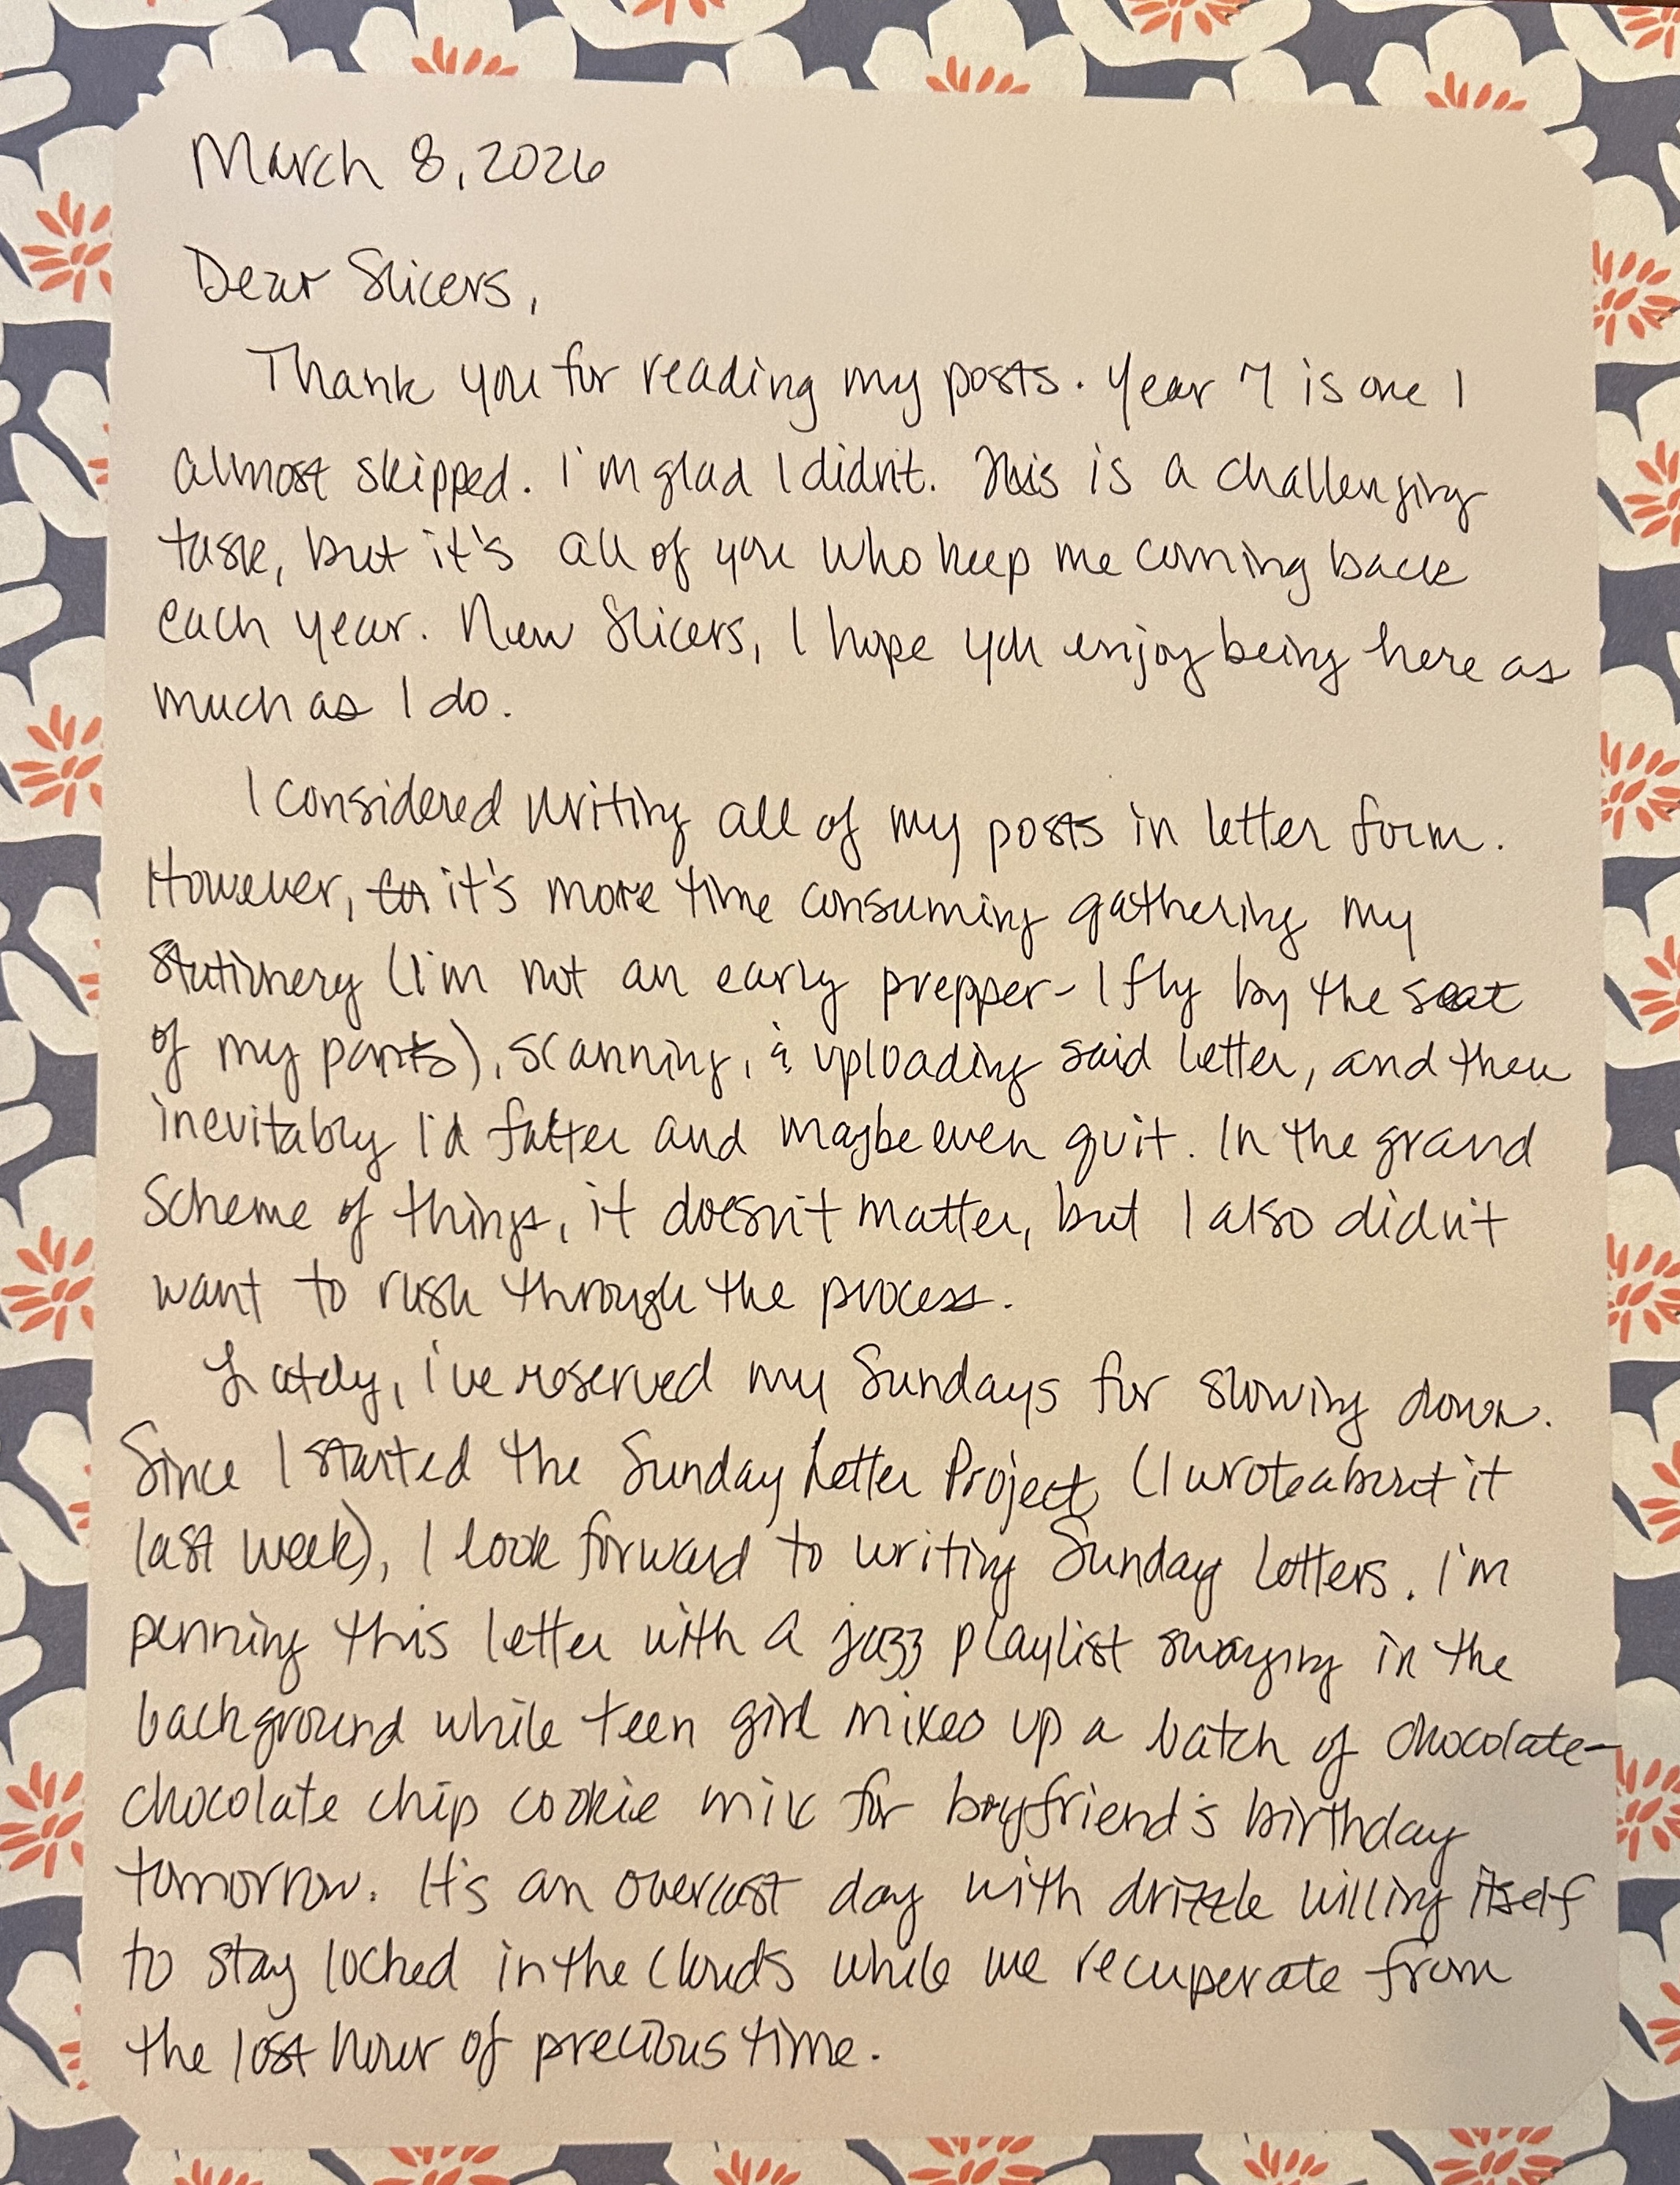 March 8, 2026
Dear Slicers,
Thank you for reading my posts. Year 7 is one I
almost skipped. I'm glad I didn't. This is a challenging
task, but it's all of you who keep me coming back
each year. New Slicers, I hope you enjoy being here as
much as I do.
I considered writing all of my posts in letter form.
However, it's more time consuming gathering my
stationery (I'm not an early prepper- I fly by the seat
of my pants), scanning, & uploading said letter, and then
inevitably I'd falter and maybe even quit. In the grand
scheme of things, it doesn't matter, but I also didn't
want to rush through the process.
Lately, I've reserved my Sundays for slowing down.
Since I started the Sunday Letter Project (I wrote about it
last week), I look forward to writing Sunday Letters. I'm
penning this letter with a jazz playlist swaying in the
background while teen girl mixes up a batch of chocolate-
chocolate chip cookie mix for boyfriend's birthday
tomorrow. It's an overcast day with drizzle willing itself
to stay locked in the clouds while we recuperate from
the lost hour of precious time.